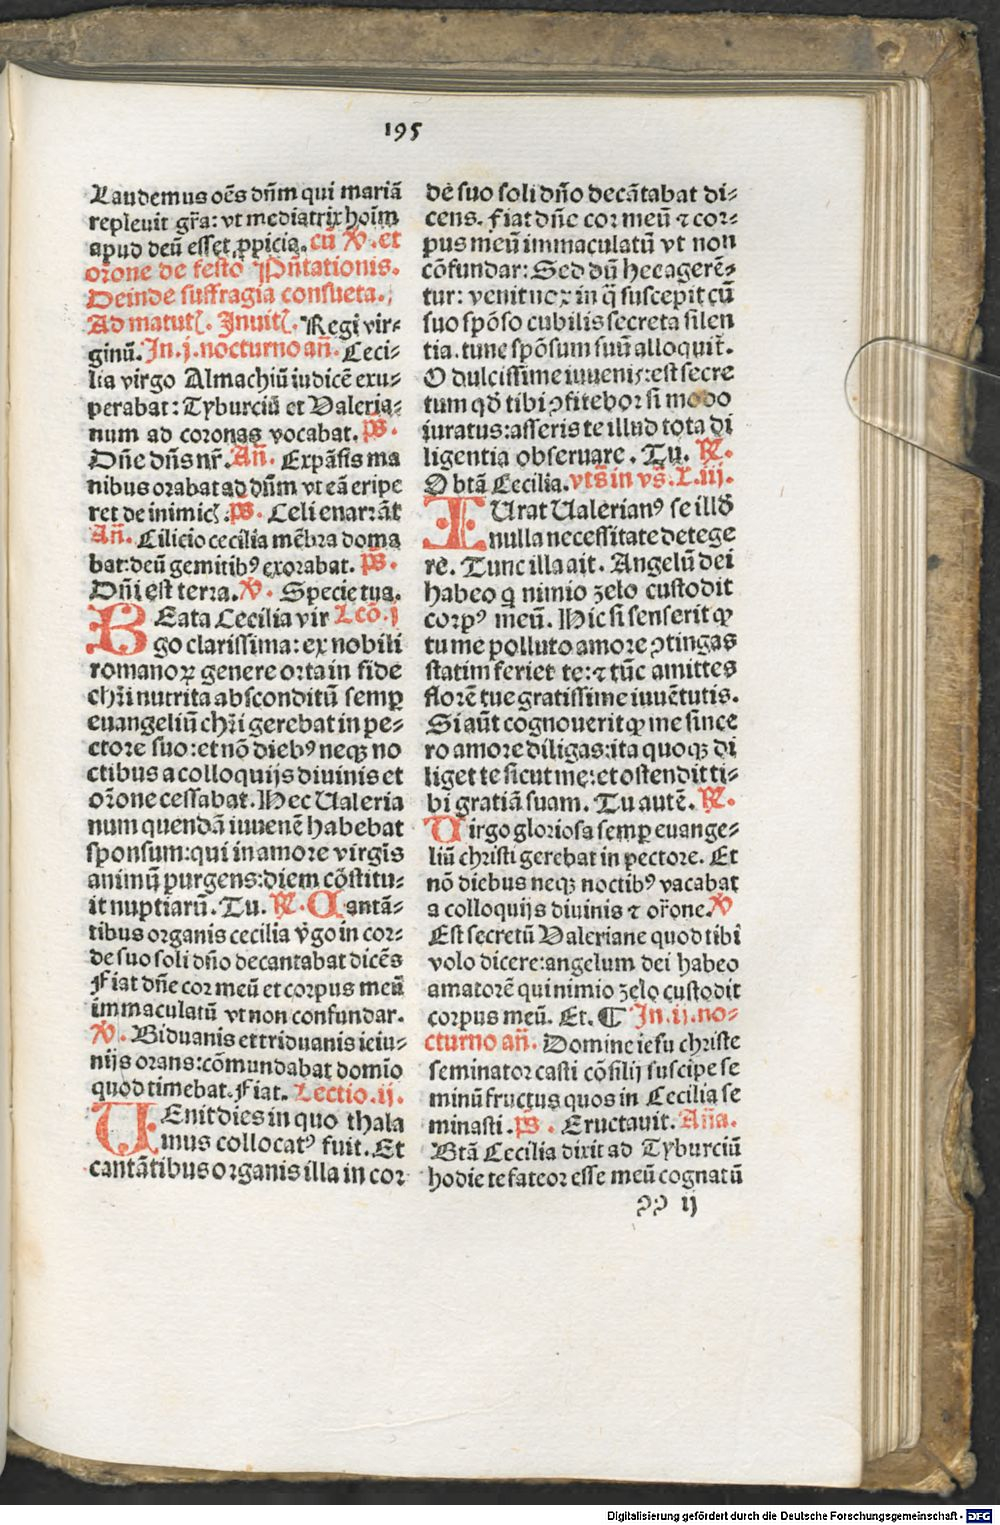 195
Laudemus oēs dñm qui mariā
repleuit gr̃a: vt mediatrix hoīm
apud deū esset ꝓpicia. cū ℣. et
or̃one de festo Pñtationis.
Deinde suffragia consueta.
Ad matut̄. Inuit̄. Regi vir⸗
ginū. In. j. nocturno an̄. Ceci⸗
lia virgo Almachiū iudicē exu⸗
perabat: Tyburciū et Valeria⸗
num ad coronas vocabat. p̄s.
Dñe dñs nr̄. An̄. Expāsis ma
nibus orabat ad dñm vt eā eripe
ret de inimic̄. p̄s. Celi enarrāt
An̄. Cilicio cecilia mēbra doma
bat: deū gemitibꝰ exorabat. p̄s.
Dñi est terra. ℣. Specie tua.
BEata Cecilia vir Lcō. j
go clarissima: ex nobili
romanoꝝ genere orta in fide
chr̄i nutrita absconditū semꝑ
euangeliū chr̄i gerebat in pe⸗
ctore suo: et nō diebꝰ neqꝫ no
ctibus a colloquijs diuinis et
or̃one cessabat. Hec Ualeria
num quendā iuuenē habebat
sponsum: qui in amore virgīs
animū purgens: diem cōstitu⸗
it nuptiarū. Tu. ℟. Cantā⸗
tibus organis cecilia v̄go in cor⸗
de suo soli dño decantabat dicēs
Fiat dñe cor meū et corpus meū
immaculatū vt non confundar.
℣. Biduanis et triduanis ieiu⸗
nijs orans: cōmundabat domīo
quod timebat. Fiat. Lectio. ij.
UEnit dies in quo thala
mus collocatꝰ fuit. Et
cantātibus organis illa in cor
de suo soli dño decātabat di⸗
cens. fiat dñe cor meū ⁊ cor⸗
pus meū immaculatū vt non
cōfundar: Sed dū hec agerē⸗
tur: venit nox in q̄ suscepit cū
suo spōso cubilis secreta silen
tia. tunc spōsum suū alloquit̄.
O dulcissime iuuenis: est secre
tum qd̄ tibi ꝯfitebor si modo
juratus: asseris te illud tota di
ligentia obseruare. Tu. ℟.
O btā Cecilia. vts̄ in vs̄. L. iij.
IUrat Ualerianꝰ se illd̄
nulla necessitate detege
re. Tunc illa ait. Angelū dei
habeo q̄ nimio zelo custodit
corpꝰ meū. Hic si senserit qꝫ
tu me polluto amore ꝯtingas
statim feriet te: ⁊ tūc amittes
florē tue gratissime iuuētutis.
Si aūt cognouerit qꝫ me since
ro amore diligas: ita quoqꝫ di
liget te sicut me: et ostendit ti⸗
bi gratiā suam. Tu autē. ℟.
Virgo gloriosa semꝑ euange⸗
liū christi gerebat in pectore. Et
nō diebus neqꝫ noctibꝰ vacabat
a colloquijs diuinis ⁊ or̃one. ℣
Est secretū Valeriane quod tibi
volo dicere: angelum dei habeo
amatorē qui nimio zelo custodit
corpus meū. Et. ¶ In. ij. no⸗
cturno an̄. Domine iesu christe
seminator casti cōsilij suscipe se
minū fructus quos in Cecilia se
minasti. p̄s. Eructauit. An̄a.
Btā Cecilia dixit ad Tyburciū
hodie te fateor esse meū cognatū
ꝯꝯ ij
Digitalisierung gefördert durch die Deutsche Forschungsgemeinschaft - DFG